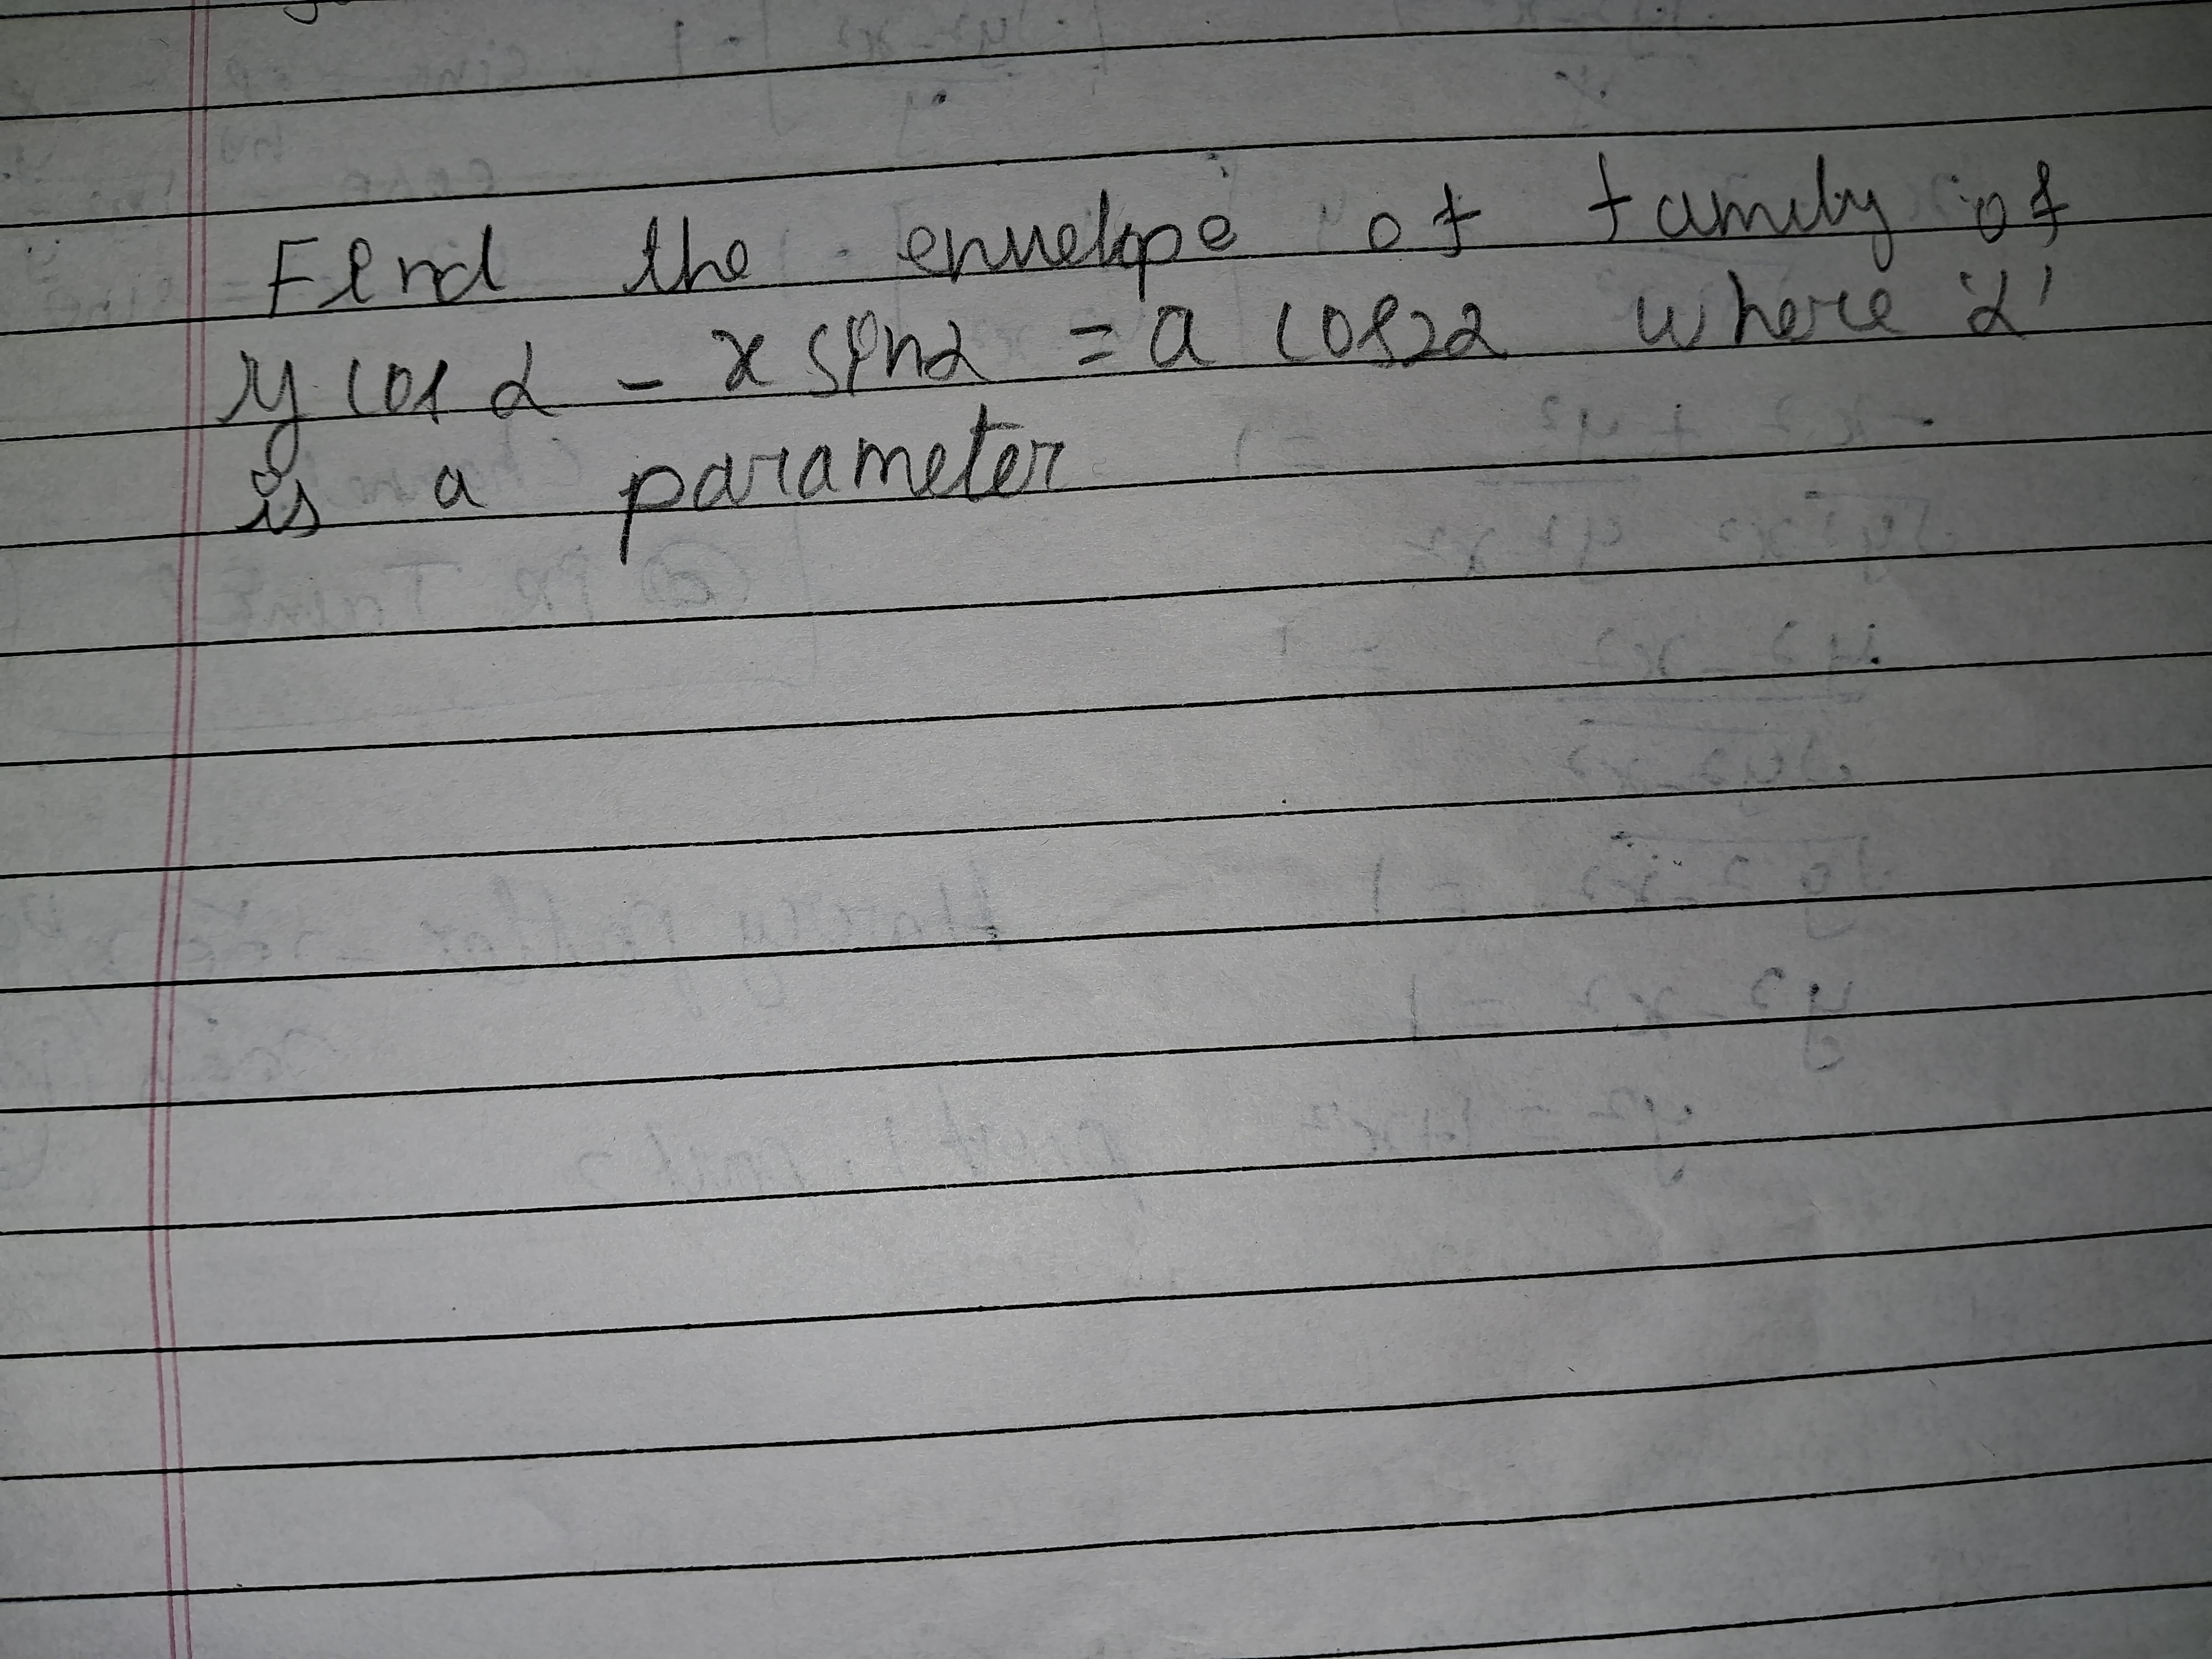 Find the envelope of family of
y cos α - x sin α = a cos 2α where 'α'
is a parameter